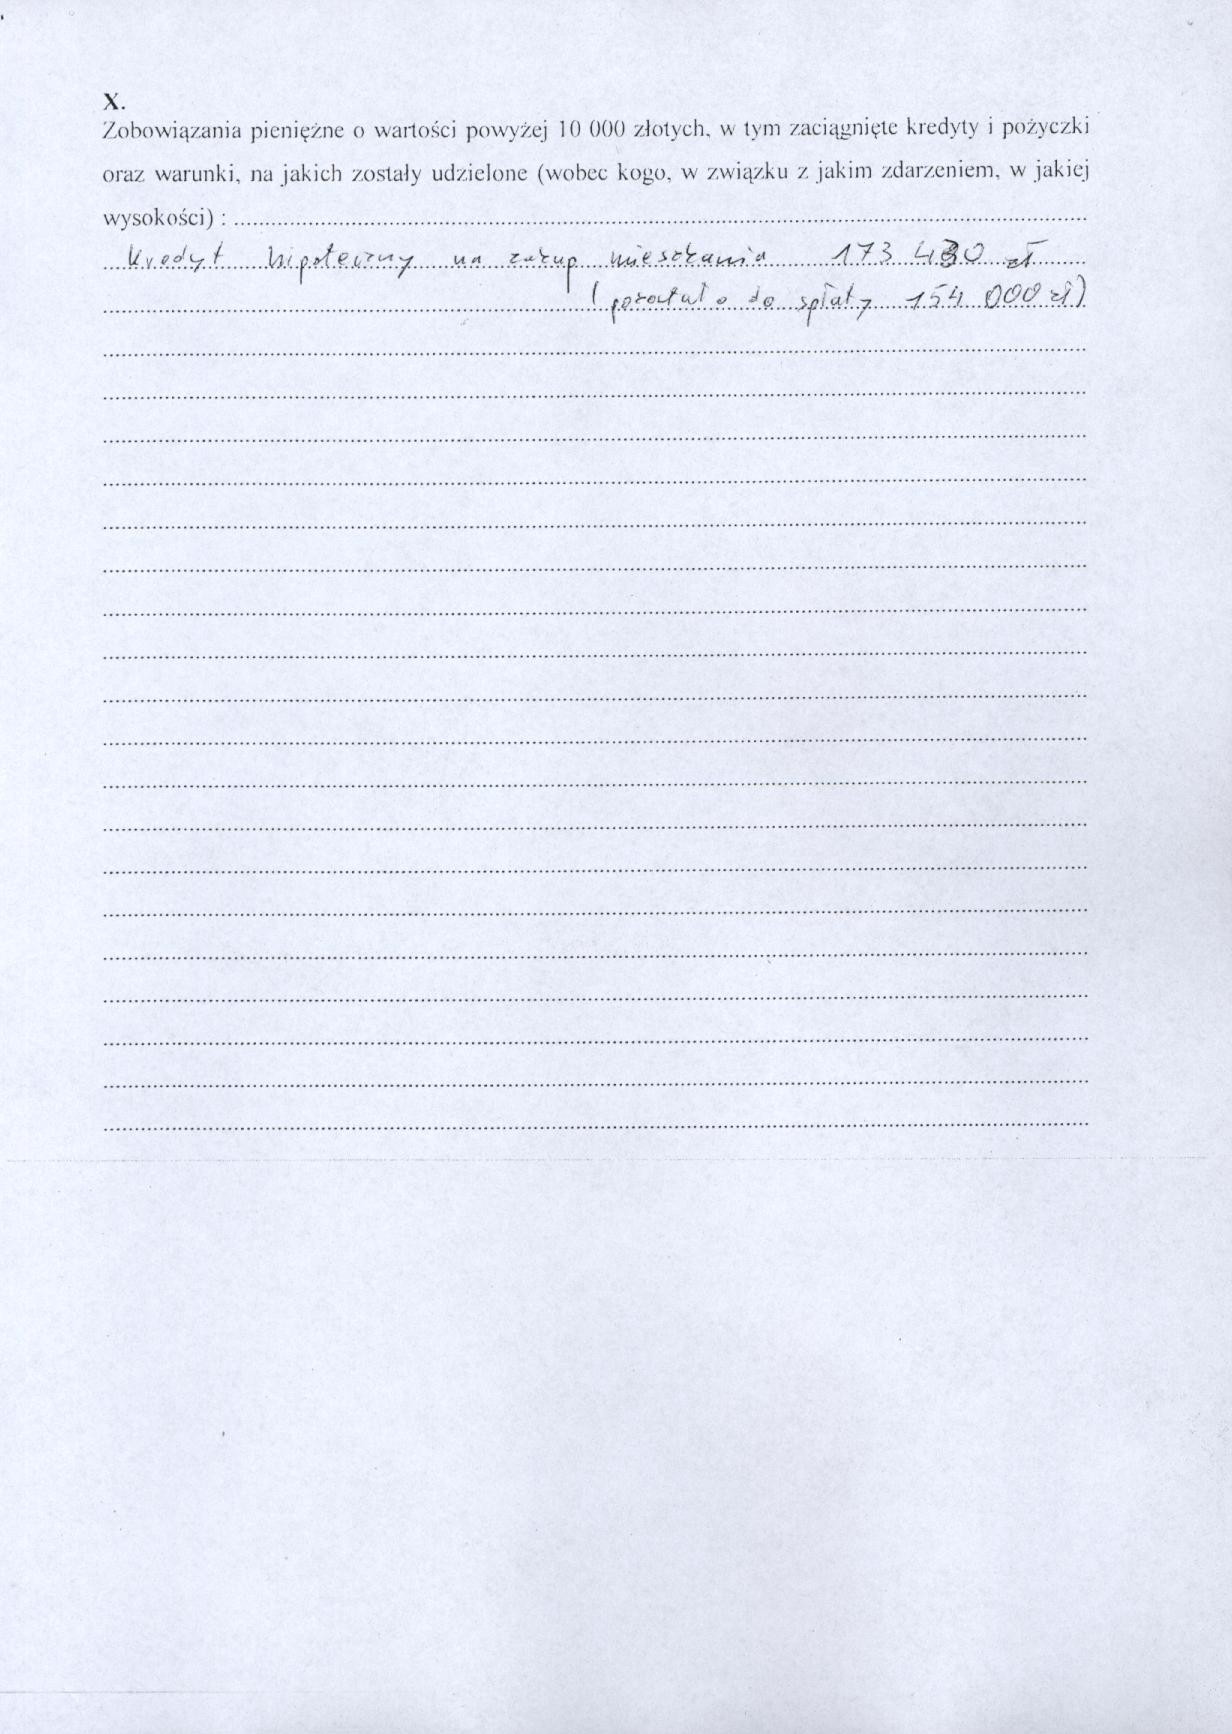 X.
Zobowiązania pieniężne o wartości powyżej 10 000 złotych, w tym zaciągnięte kredyty i pożyczki
oraz warunki, na jakich zostały udzielone (wobec kogo, w związku z jakim zdarzeniem, w jakiej
wysokości) :
Kredyt hipoteczny na zakup mieszkania 173 430 zł
(pozostało do spłaty 154 000 zł)